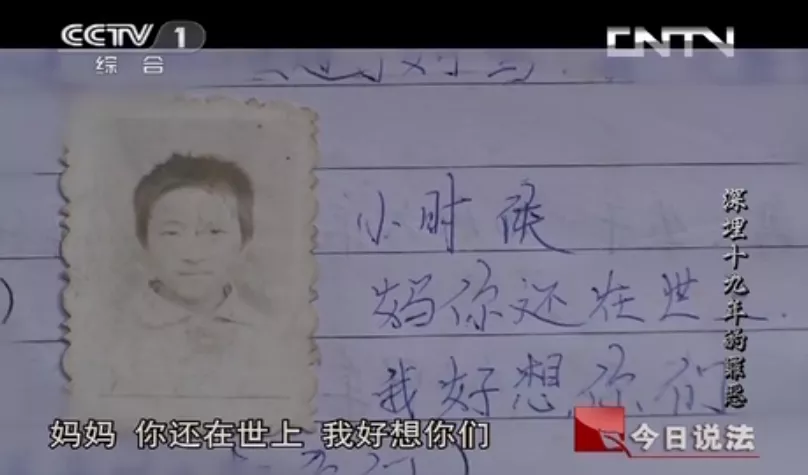 CCTV 1
综合
CNTV
小时候
妈你还在世上.
我好想你们
深埋十九年的罪恶
妈妈 你还在世上 我好想你们
今日说法